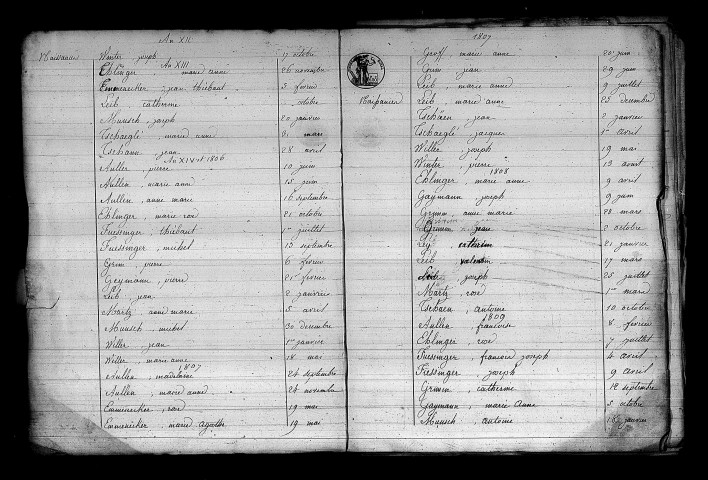 An XII
Naissances Winter, joseph 17 octobre
An XIII
Ehlinger, marie anne 26 novembre
Emmenecker, jean thiébaut 3 fevrier
Leib, catherine octobre
Munsch, joseph 20 janvier
Tschaeglé, marie anne 9 mars
Tschann, jean 28 avril
An XIV et 1806
Aullen, pierre 10 juin
Aullen, marie anne 15 juin
Aullen, anne marie 16 septembre
Ehlinger, marie rose 21 octobre
Fuessinger, thiebaut 1er juillet
Fuessinger, michel 13 septembre
Grim, pierre 6 fevrier
Gaymann, pierre 21 fevrier
Leib, jean 2 janvier
Martz, anne marie 5 avril
Munsch, michel 30 decembre
Willer, jean 1er janvier
Willer, marie anne 18 mai
1807
Aullen, madelaine 24 septembre
Aullen, marie anne 28 novembre
Emmenecker, rose 19 mai
Emmenecker, marie agathe 19 mai
1807
Groff, marie anne 20 juin
Grim, jean 29 juin
Leib, marie anne 9 juillet
Naissances Leib, marie anne 25 decembre
Tschaen, jean 2 janvier
Tschaeglé, jacque 1er avril
Willer, joseph 19 mai
Winter, pierre 13 aout
1808
Ehlinger, marie anne 9 avril
Gaymann, joseph 9 juin
Grimm, anne marie 28 mars
Grimm, jean 2 octobre
Leib, catherine 21 janvier
Leib, valentin 17 mars
joseph 25 juillet
Martz, rose 1er mars
Tschaen, antoine 10 octobre
1809
Aullen, francoise 8 fevrier
Ehlinger, rose 7 juillet
Fuessinger, francois joseph 4 avril
Fuessinger, joseph 9 avril
Grimm, catherine 18 septembre
Gaymann, marie anne 5 octobre
Munsch, antoine 16 janvier